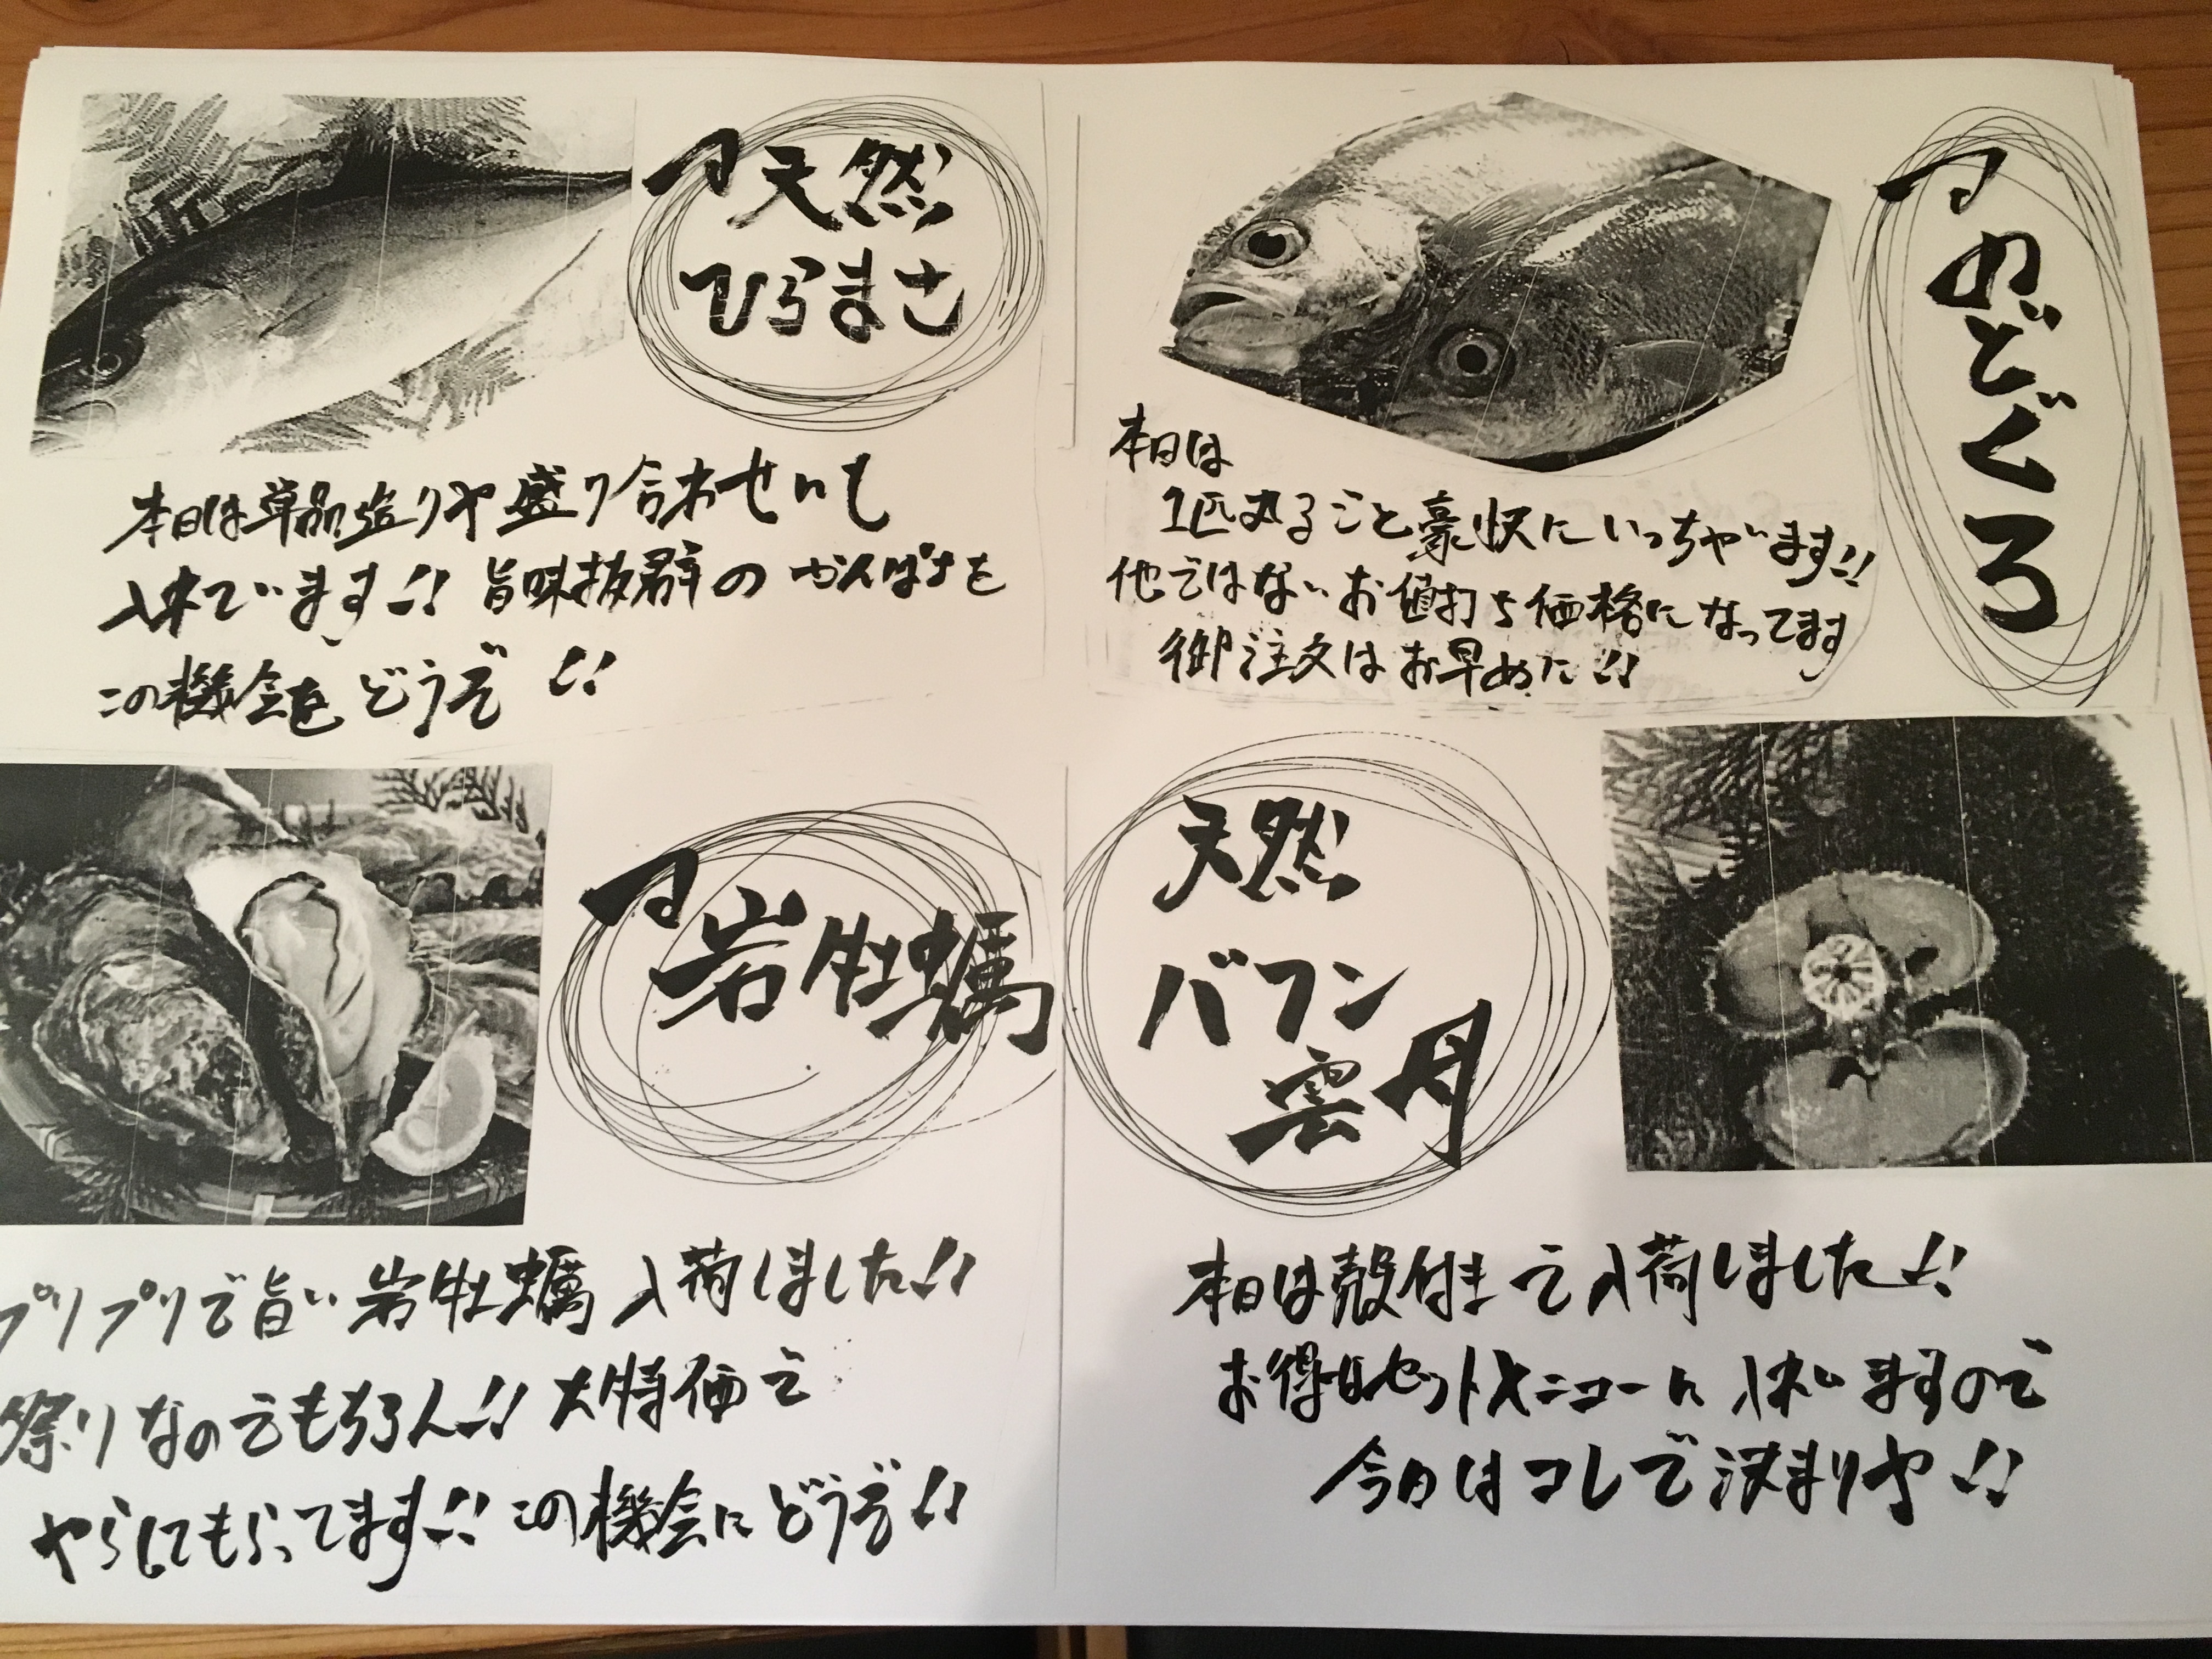 天然
ひらまさ
本日は単品造りや盛り合わせにも
入れています!! 旨味抜群のかんぱちを
この機会をどうぞ!!
のどぐろ
本日は
1匹丸ごと豪快にいっちゃいます!!
他ではないお値打ち価格になってます
御注文はお早めに!!
岩牡蠣
プリプリで旨い岩牡蠣入荷しました!!
祭りなのでもちろん!! 大特価で
やらしてもらってます!! この機会にどうぞ!!
天然
バフン
雲丹
本日は殻付きで入荷しました!!
お得なセットメニューに入れますので
今日はコレで決まりや!!